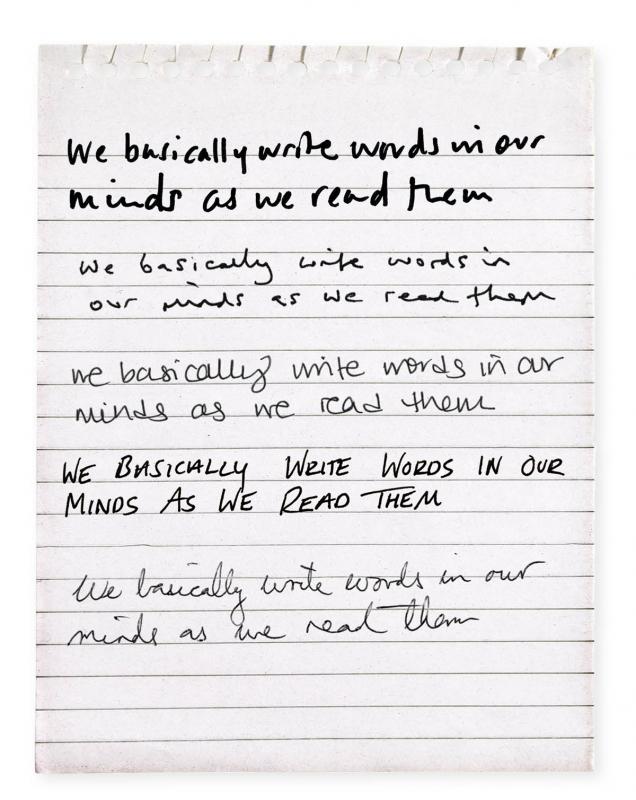 We basically write words in our
minds as we read them
We basically write words in
our minds as we read them
We basically write words in our
minds as we read them
WE BASICALLY WRITE WORDS IN OUR
MINDS AS WE READ THEM
We basically write words in our
minds as we read them